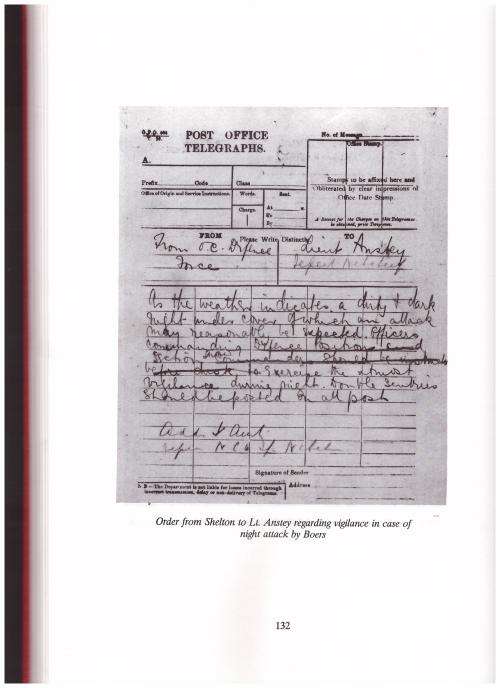 POST OFFICE
TELEGRAPHS.
No. of Message
Office Stamp.
A.
Prefix Code Class
Office of Origin and Service Instructions.
Words. Sent.
At
To
By
Charge.
Stamps to be affixed here and
obliterated by clear impressions of
Office Date Stamp.
A Receipt for the Charges on this Telegram
is obtained, price Twopence.
FROM Please Write Distinctly. TO
From O.C. Defence
Force
Lieut Anstey
As the weather indicates a dirty & dark
night under cover of which an attack
may reasonably be expected Officers
commanding Defence Positions and
Section should
before dusk to exercise the utmost
vigilance during night. Double Sentries
should be posted on all post
Signature of Sender
N B—The Department is not liable for losses incurred through
incorrect transmission, delay or non-delivery of Telegrams.
Address
Order from Shelton to Lt. Anstey regarding vigilance in case of
night attack by Boers
132